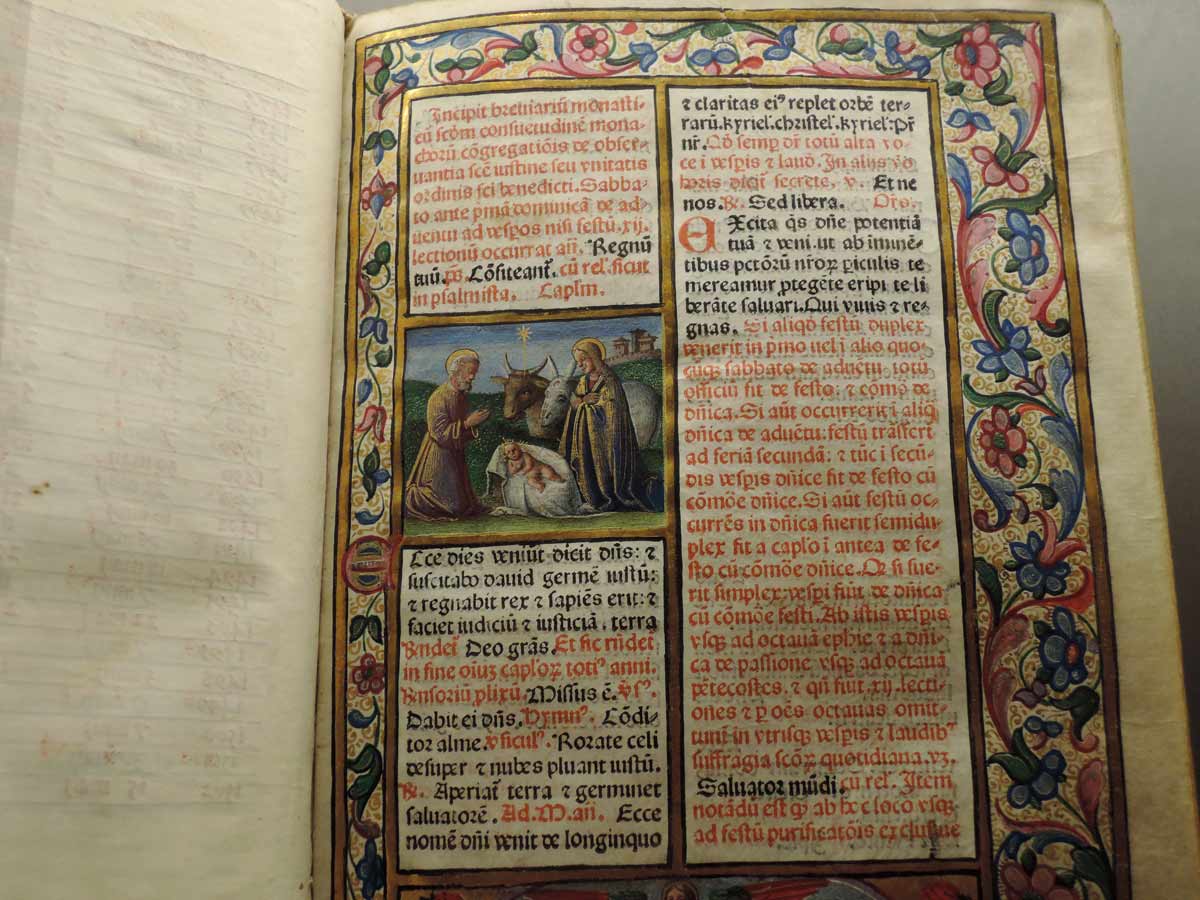 Incipit breviariū monasti-
cū scdm consuetudinē mona-
chorū cōgregationis de obser-
uantia scē iustine seu vnitatis
ordinis sci benedicti. Sabba-
to ante pmā dominicā de ad-
uentu ad vespos nisi festū .xij.
lectionū occurrat añ. Regnū
tuū. ps. Cōfiteant. cū rel. sicut
in psalmista. Caplm.
Ecce dies veniūt dicit dñs: ⁊
suscitabo dauid germē iustū:
⁊ regnabit rex ⁊ sapiēs erit: ⁊
faciet iudiciū ⁊ iusticiā. terra
Rndet Deo grās. Et sic rñdet
in fine oīuʒ caploꝝ totiꝰ anni.
Rnsoriū plixū Missus ē. Vsꝰ.
Dabit ei dñs. Hymnꝰ. Cōdi-
tor alme. ꝟsiculꝰ. Rorate celi
desuper ⁊ nubes pluant iustū.
℞. Aperiat terra ⁊ germinet
saluatorē. Ad. M. an. Ecce
nomē dñi venit de longinquo
⁊ claritas eiꝰ replet orbē ter-
rarū. kyriel. christel. kyriel: Pr̄
nr̄. Qd semp dr totū alta vo-
ce i vespis ⁊ laud. In alijs
horis dicit secrete, v. Et ne
nos. ℞. Sed libera. Oro.
EXcita q̄s dñe potentiā
tuā ⁊ veni. ut ab iminē-
tibus pctōrū nroꝝ piculis te
mereamur ptegēte eripi te li
berāte saluari. Qui viuis ⁊ re-
gnas. Si aliqd festū duplex
venerit in pmo uel i alio quo-
cūqꝫ sabbato de aduētu, totū
officiū fit de festo: ⁊ cōmō de
dñica. Si aūt occurrerit i aliq
dñica de aduētu: festū trāsfert
ad feriā secundā: ⁊ tūc i secū-
dis vespis dñice fit de festo cū
cōmōe dñice. Si aūt festū oc-
currēs in dñica fuerit semidu-
plex fit a caplo i antea de fe-
sto cū cōmōe dñice. Qꝫ si fue-
rit simplex: vespe fiūt de dñica
cū cōmōe festi. Ab istis vespis
vsqꝫ ad octauā ephie ⁊ a dñi-
ca de passione vsqꝫ ad octauā
pētecostes. ⁊ qñ fiūt .xij. lecti-
ones ⁊ p oēs octauas omit-
tunt in vtrisqꝫ vespis ⁊ laudibꝰ
suffragia scōꝝ quotidiana. vꝫ.
Saluator mūdi. cū rel. Item
notādū est qꝫ ab hoc loco vsqꝫ
ad festū purificatōis exclusiue